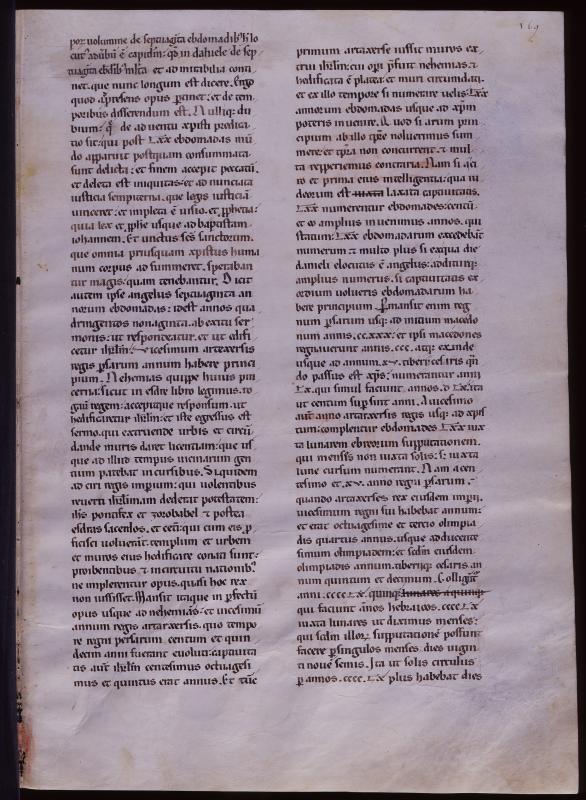 por uolumine de septuaginta ebdomadib; h lo
cut' ad uerbū ē capitulū: qd in daniele de sep
tuaginta ebdib; insta et ad mirabilia conti
net. que nunc longum est dicere. Ergo
quod ad presens opus pertinet: et de tem
poribus differendum est. Nulliq; du
bium: qd de aduentu xpisti predica
tio sit: qui post Lxx ebdomadas mū
do apparuit postquam consummata
sunt delicta: et finem accepit peccatū.
et deleta est iniquitas: et adnunciata
iusticia sempiterna. que legis iusticiā
uinceret: et impleta ē uisio. et pphetia:
quia lex et pphe usque ad baptistam
iohannem. Et unctus ses sanctorum.
que omnia priusquam xpistus huma
num corpus adsummeret. speraban
tur magis: quam tenebantur. Dicit
autem ipse angelus septuaginta an
norum ebdomadas: idest annos qua
dringentos nonaginta. ab exitu ser
monis: ut respondeatur. et ut edifi
cetur ihrlm: uicesimum artaxersis
regis psarum annum habere princi
pium. Nehemias quippe huius pin
cerna: sicut in esdre libro legimus. ro
gauit regem: accepitque responsum. ut
hedificaretur ihrlm: et iste egressus est
sermo. qui extruende urbis et circū
dande muris daret licentiam: que us
que ad illud tempus uicinarum gen
tium patebat incursibus. Siquidem
ad ciri regis imperium: qui uolentibus
reuerti ihrlimam dederat potestatem:
ihs pontifex et zorobabel & postea
esdras sacerdos. et ceti: qui cum eis p
ficisci uoluerāt. templum et urbem
et muros eius hedificare conati sunt:
prohibentibus in circuitu nationib;
ne implerentur opus. quasi hoc rex
non iussisset. Mansit itaque inperfectū
opus usque ad nehemiā: et uicesimū
annum regis artaxersis. quo tempo
re regni persarum centum et quin
decim anni fuerant euoluti: captiuita
tis aut ihrlm centesimus octuagesi
mus et quintus erat annus. Et tūc
primum artaxerse iussit muros ex
trui ihrlm: cui opi pfuit nehemias. &
hedificata ē platea: et muri circumdati.
et ex illo tempore si numerare uelis: Lxx
annorum ebdomadas usque ad xpm
poteris inuenire. Quod si arum prin
cipium ab illo tpre noluerimus sum
mere: et tpra non concurrent. & mul
ta repperiemus contraria. Nam si a ci
ro et prima eius intelligentia: qua iu
deorum est iuxta laxata captiuitas.
Lxx numerentur ebdomades: centū
et eo amplius inuenimus annos. qui
statum: Lxx ebdomadarum excedebāt
numerum & multo plus si ex qua die
danieli elocutus ē angelus: additurq;
amplius numerus. si captiuitatis ex
ordium uolueris ebdomadarum ha
bere principium. Pmansit enim reg
num psarum usq; ad initium macedo
num annis. cc.xxx: et ipsi macedones
regnauerunt annis. ccc. atq; exinde
usque ad annum. xv. tiberi cesaris qn
do passus est xps: numerantur anni
Lx. qui simul faciunt. annos. d Lx. ita
ut centum supsint anni. A uicesimo
aut anno artaxersis regis usq; ad xpis
tum: complentur ebdomades Lxx iux
ta lunarem ebreorum supputationem.
qui menses non iuxta solis: s; iuxta
lune cursum numerant. Nam a cen
tesimo et. xv. anno regni psarum.
quando artaxerses rex eiusdem imperii.
uicesimum regni sui habebat annum:
et erat octuagesime et tercio olimpia
dis quartus annus. usque ad ducente
simum olimpiadem: et scdm eiusdem
olimpiadis annum. tiberiiq; cesaris an
num quintum et decimum. Colligūt'
anni. cccc Lxx. quinq; lunares a quinq;
qui faciunt annos hebraicos. cccc Lxx
iuxta lunares ut diximus menses:
qui scdm illor supputationē possunt
facere psingulos menses. dies uigin
ti noue semis. Ita ut solis circulus
p annos. cccc. Lxx plus habebat dies